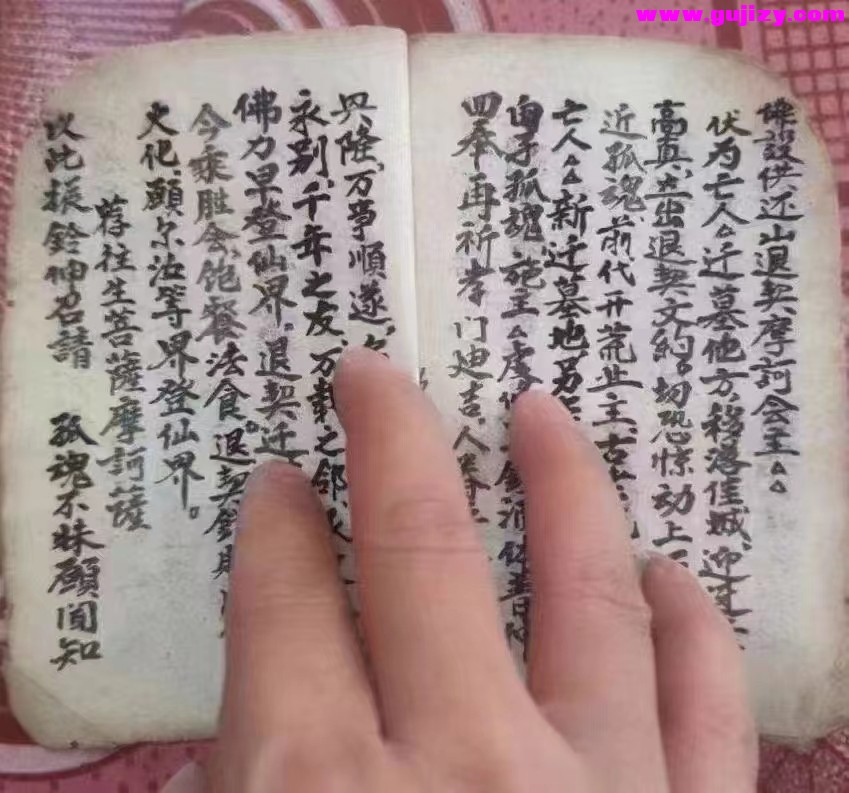 www.gujizy.com
佛設供还山退契摩訶会主△△
伏为亡人△迁墓他方,移落佳城,迎
高真,立出退契文約,切恐惊动上
近孤魂,前代开荒
亡人△△新迁墓地另
白子孤魂,施主△虔
四奉再祈孝门迪吉,人
兴隆,万事順遂,
永别,千年之友,万載之
佛力早登仙界。退契迁
今乘胜会,饱餐法食,退契錢財
火化,願尓汝等界登仙界。
荐往生菩薩摩訶薩
以此振鈴伸召請 孤魂不昧願聞知